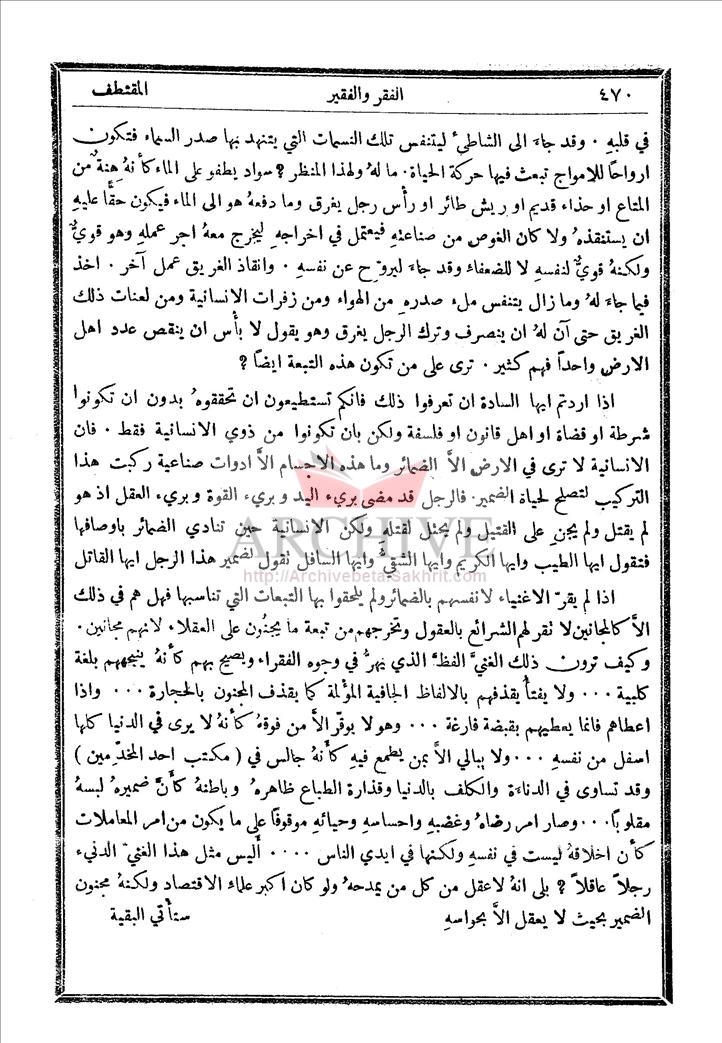 ٤٧٠ الفقر والفقير المقتطف
في قلبهِ . وقد جاءَ الى الشاطئِ ليتنفس تلك النسمات التي يتنهد بها صدر السماء فتكون
ارواحًا للامواج تبعث فيها حركة الحياة. ما لهُ ولهذا المنظر ? سواد يطفو على الماء كأنهُ هنةٌ من
المتاع او حذاء قديم او ريش طائر او رأس رجل يغرق وما دفعهُ هو الى الماء فيكون حقًّا عليهِ
ان يستنقذهُ ولا كان الغوص من صناعتهِ فيعتمل في اخراجهِ ليخرج معهُ اجر عملهِ وهو قويٌّ
ولكنهُ قويٌّ لنفسهِ لا للضعفاء وقد جاءَ ليروّح عن نفسهِ . وانقاذ الغريق عمل آخر . اخذ
فيما جاءَ لهُ وما زال يتنفس ملء صدرهِ من الهواء ومن زفرات الانسانية ومن لعنات ذلك
الغريق حتى آن لهُ ان ينصرف وترك الرجل يغرق وهو يقول لا بأس ان ينقص عدد اهل
الارض واحداً فهم كثير . ترى على من تكون هذه التبعة ايضاً ?
اذا اردتم ايها السادة ان تعرفوا ذلك فانكم تستطيعون ان تحققوهُ بدون ان تكونوا
شرطة او قضاة او اهل قانون او فلسفة ولكن بان تكونوا من ذوي الانسانية فقط . فان
الانسانية لا ترى في الارض الاَّ الضمائر وما هذه الاجسام الاَّ ادوات صناعية ركبت هذا
التركيب لتصلح لحياة الضمير. فالرجل قد مضى بريء اليد وبريء القوة وبريء العقل اذ هو
لم يقتل ولم يجنِ على القتيل ولم يحتل لقتلهِ ولكن الانسانية حين تنادي الضمائر باوصافها
فتقول ايها الطيب وايها الكريم وايها الشقيُّ وايها السافل تقول لضمير هذا الرجل ايها القاتل
اذا لم يقرّ الاغنياء لانفسهم بالضمائر ولم يلحقوا بها التبعات التي تناسبها فهل هم في ذلك
الاَّ كالمجانين لا تقر لهم الشرائع بالعقول وتخرجهم من تبعة ما يجنون على العقلاء لانهم مجانين .
وكيف ترون ذلك الغنيَّ الفظَّ الذي ينهرُّ في وجوه الفقراء ويصيح بهم كأنهُ ينبحهم بلغة
كلبية ... ولا يفتأُ يقذفهم بالالفاظ الجافية المؤلمة كما يقذف المجنون بالحجارة ... واذا
اعطاهم فانما يعطيهم بقبضة فارغة ... وهو لا يوقّر الاَّ من فوقهُ كأنهُ لا يرى في الدنيا كلها
اسفل من نفسهِ ... ولا يبالي الاَّ بمن يطمع فيهِ كأنهُ جالس في ( مكتب احد المخدّمين )
وقد تساوى في الدناءة والكلف بالدنيا وقذارة الطباع ظاهرهُ وباطنهُ كأنَّ ضميرهُ لبسهُ
مقلوبًا... وصار امر رضاهُ وغضبهِ واحساسهِ وحيائهِ موقوفًا على ما يكون من امر المعاملات
كأن اخلاقهُ ليست في نفسهِ ولكنها في ايدي الناس .... أليس مثل هذا الغنيّ الدنيء
رجلاً عاقلاً ? بلى انهُ لاعقل من كل من يمدحهُ ولو كان اكبر علماء الاقتصاد ولكنهُ مجنون
الضمير بحيث لا يعقل الاَّ بحواسهِ ستأتي البقية
ARCHIVE
http://Archivebeta.Sakhrit.com